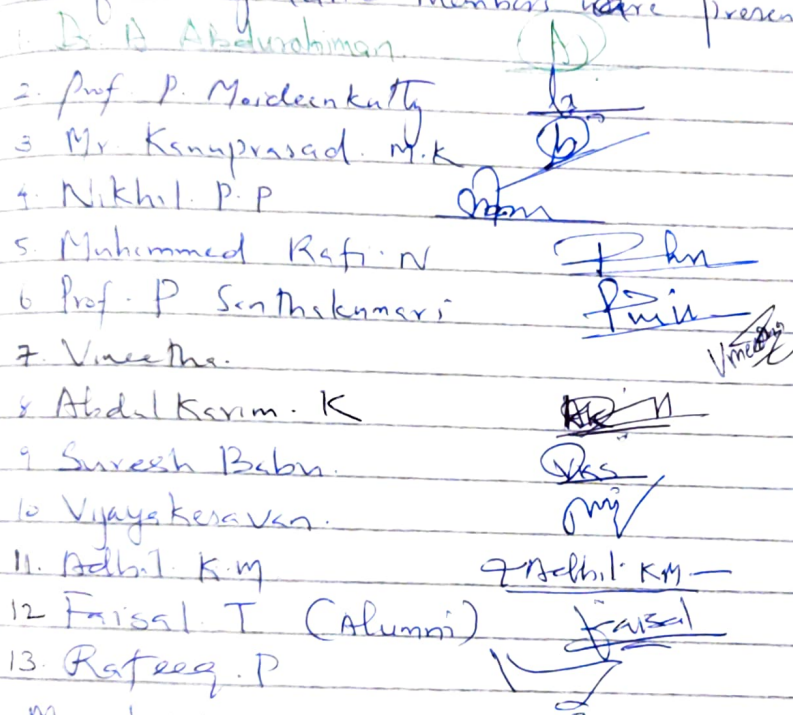 Members were presen
1. Dr. A Abdurahiman
2. Prof P. Moideenkutty
3 Mr. Kanuprasad. M.K
4. Nikhil. P. P
5. Muhammed Rafi. N
6 Prof. P Santhakumari
7. Vineetha.
8 Abdul Karim. K
9 Suresh Babu.
10 Vijayakesavan.
11. Adhil. K.M Adhil. KM
12 Faisal. T (Alumni) Faisal
13. Rafeeq. P